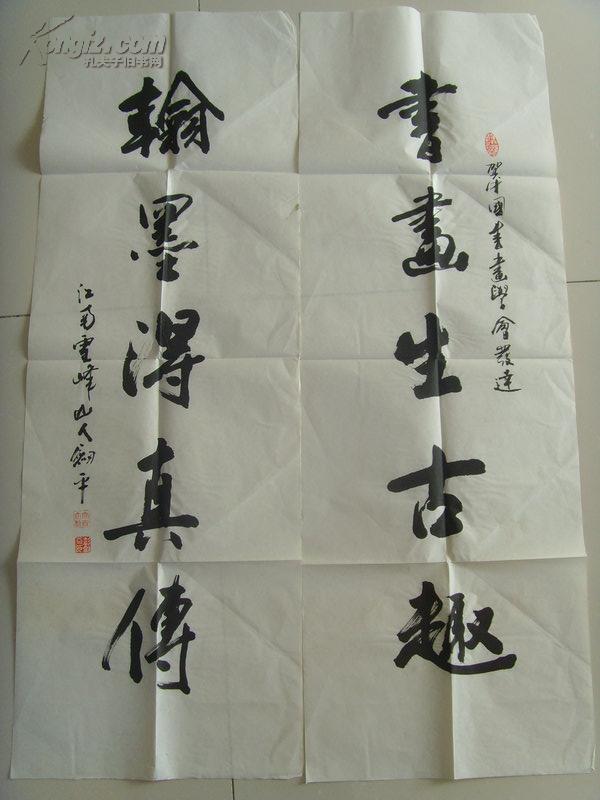 書畫生古趣
國書畫學會發達
翰墨得真傳
江南雲峰山人劍平
Kongfz.com
孔夫子旧书网